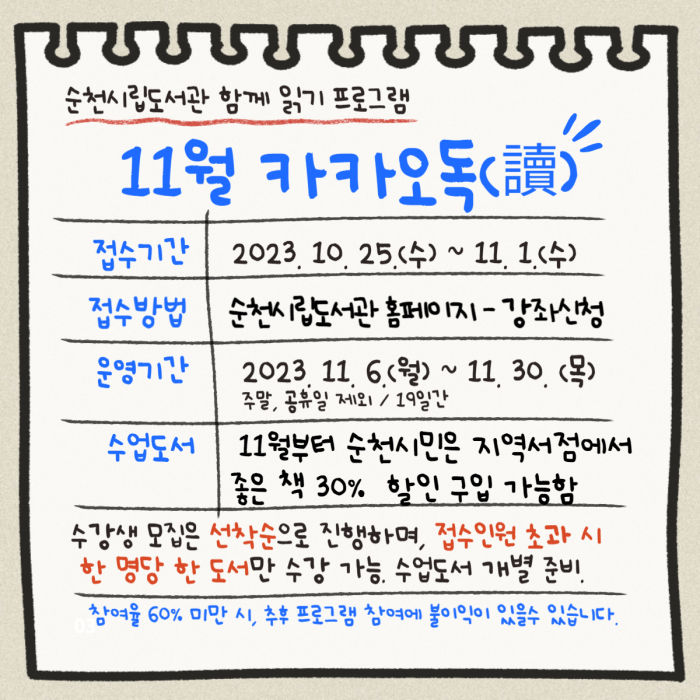 순천시립도서관 함께 읽기 프로그램
11월 카카오독(讀)
접수기간 2023. 10. 25.(수) ~ 11. 1.(수)
접수방법 순천시립도서관 홈페이지 - 강좌신청
운영기간 2023. 11. 6.(월) ~ 11. 30. (목)
주말, 공휴일 제외 / 19일간
수업도서 11월부터 순천시민은 지역서점에서
좋은 책 30% 할인 구입 가능함
수강생 모집은 선착순으로 진행하며, 접수인원 초과 시
한 명당 한 도서만 수강 가능. 수업도서 개별 준비.
참여율 60% 미만 시, 추후 프로그램 참여에 불이익이 있을수 있습니다.
03